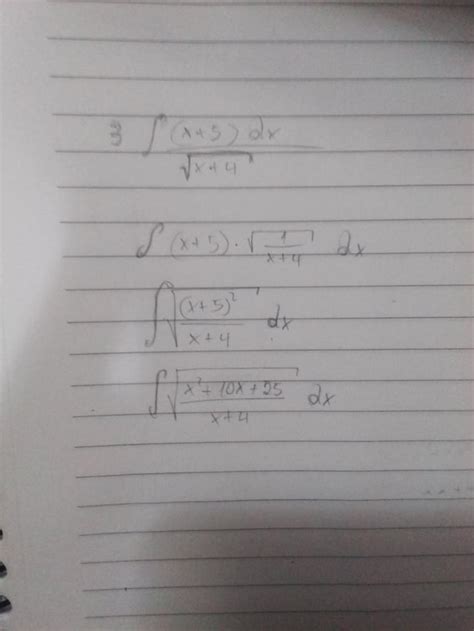 3 ∫ (x+5) dx / √(x+4)
∫ (x+5) · √(1/(x+4)) dx
∫ √((x+5)²/(x+4)) dx
∫ √((x²+10x+25)/(x+4)) dx